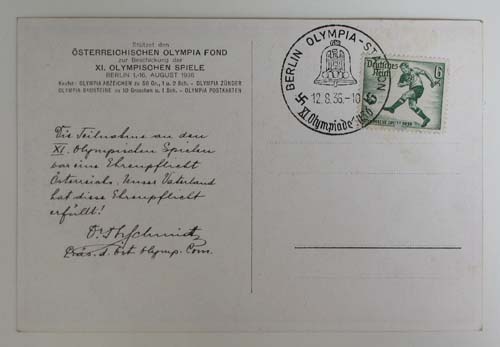 Stützet den
ÖSTERREICHISCHEN OLYMPIA FOND
zur Beschickung der
XI. OLYMPISCHEN SPIELE
BERLIN 1.-16. AUGUST 1936
Kaufet: OLYMPIA ABZEICHEN zu 50 Gr., 1 u. 2 Sch. - OLYMPIA ZÜNDER
OLYMPIA BAUSTEINE zu 10 Groschen u. 1 Sch. - OLYMPIA POSTKARTEN
Die Teilnahme an den
XI. Olympischen Spielen
war eine Ehrenpflicht
Österreichs. Unser Vaterland
hat diese Ehrenpflicht
erfüllt!
Präs. d. Öst. Olymp. Com.
BERLIN OLYMPIA-
12.8.36.-10
XI. Olympiade 1936
Deutsches
Reich
6